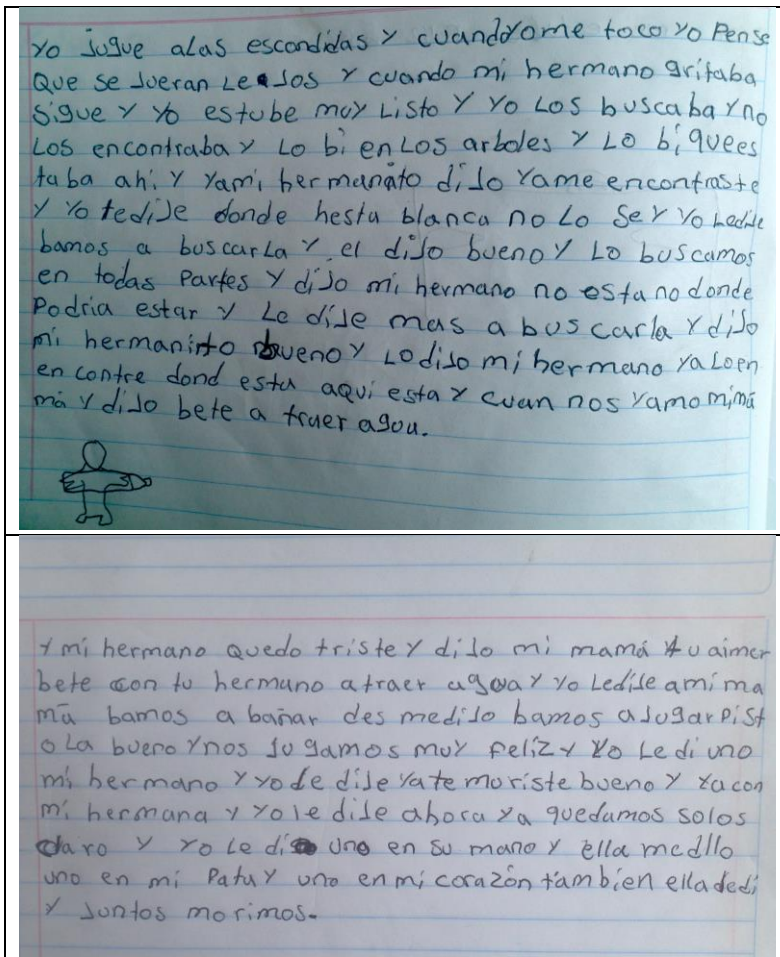 Yo Jugue alas escondidas y cuandoYome toco Yo Pense
Que se Jueran Le Jos Y cuando mi hermano gritaba
Sigue y Yo estube muy Listo Y Yo Los buscaba Y no
Los encontraba Y Lo bi en Los arboles Y Lo bi quees
taba ahi Y Yami hermanato diJo Yame encontraste
Y Yo tediJe donde hesta blanca no Lo Se Y Yo LediJe
bamos a buscarLa Y el diJo bueno Y Lo buscamos
en todas Partes Y diJo mi hermano no esta no donde
Podria estar Y Le diJe mas a buscarla Y diJo
mi hermanito bueno Y Lo diJo mi hermano Ya Loen
en contre dond esta aqui esta Y cuan nos Vamo mimá
má Y diJo bete a traer agou.
Y mi hermano Quedo triste Y diJo mi mamá tu aimer
bete con tu hermano a traer agoa Y Yo LediJe ami ma
má bamos a bañar des mediJo bamos a Jugar Pist
oLa bueno Y nos Jugamos muy feliz Y Yo Le di uno
mi hermano Y Yo Le diJe Ya te moriste bueno Y Ya con
mi hermana Y Yo le diJe ahora Ya quedamos solos
claro Y Yo Le di uno en su mano Y ella medllo
uno en mi Pata Y uno en mi corazón tambien ella dedi
Y Juntos morimos.